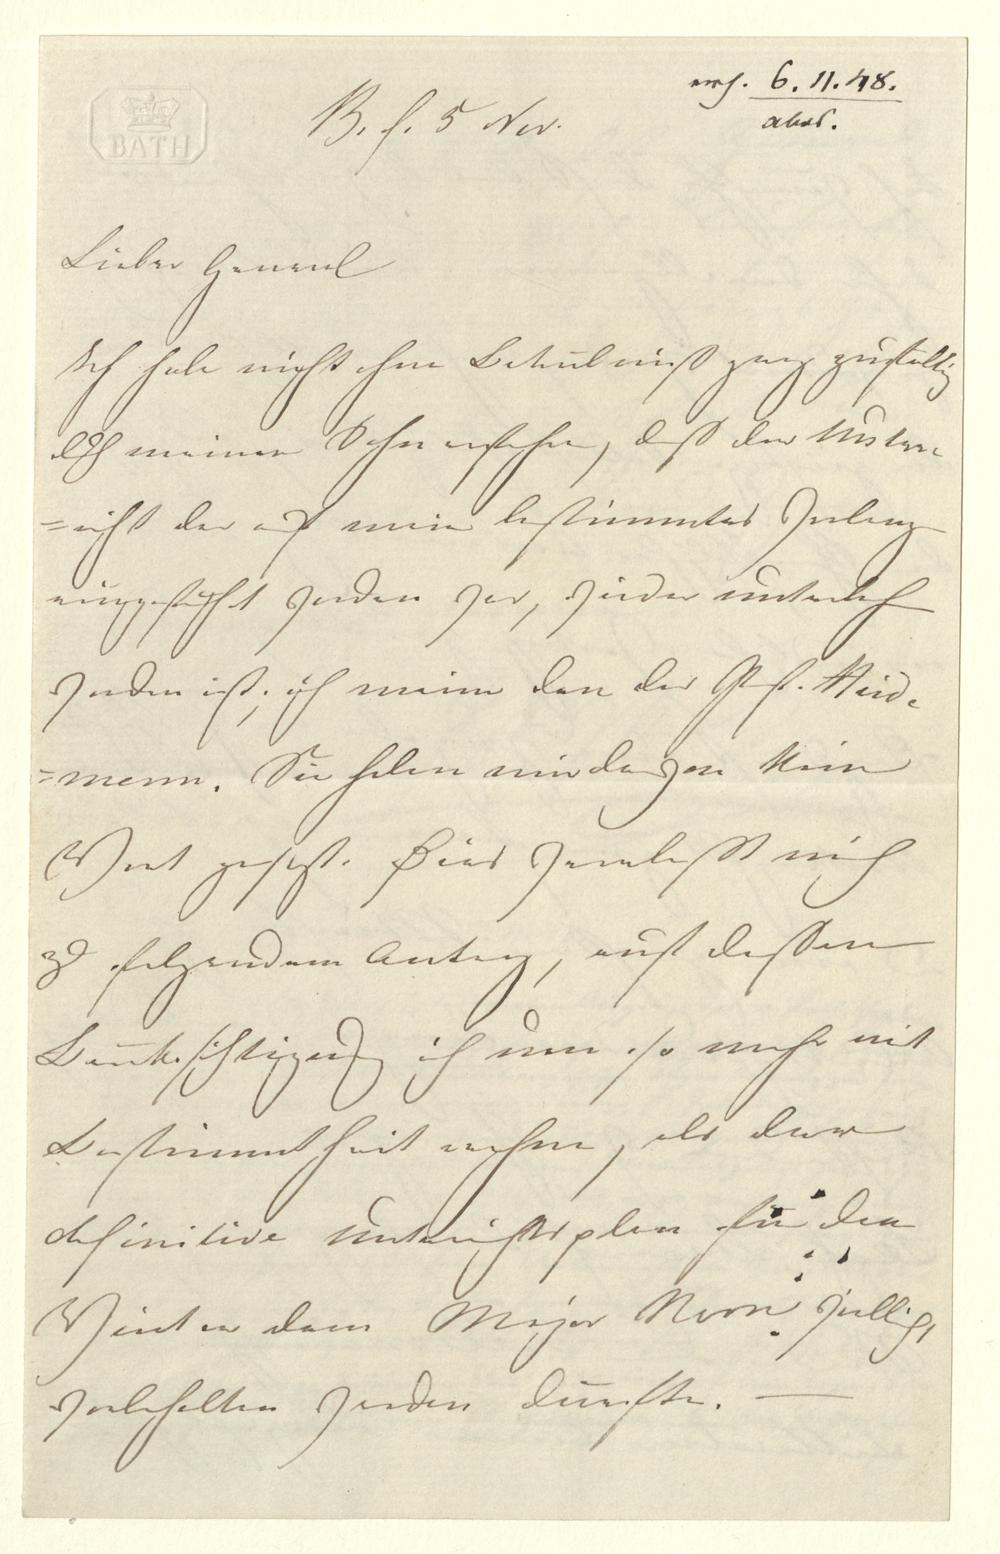 BATH
B. d. 5 Nov.
erh. 6. 11. 48.
abds.
Lieber General
Ich habe nicht ohne Betrübniß ganz zufällig
dch meinen Sohn erfahren, daß der Unter-
=richt der auf mein bestimmtes Verlangen
eingeführt worden war, wieder unterbrochen
worden ist; ich meine den des Prof. Weid-
=mann. Sie haben mir davon kein
Wort gesagt. Dies veranlaßt mich
zu folgendem Antrag, auf dessen
Berücksichtigung ich um so mehr mit
Bestimmtheit rechne, als der
definitive Unterrichtsplan für den
Winter dem Major Roon vielleicht
vorbehalten werden dürfte. —